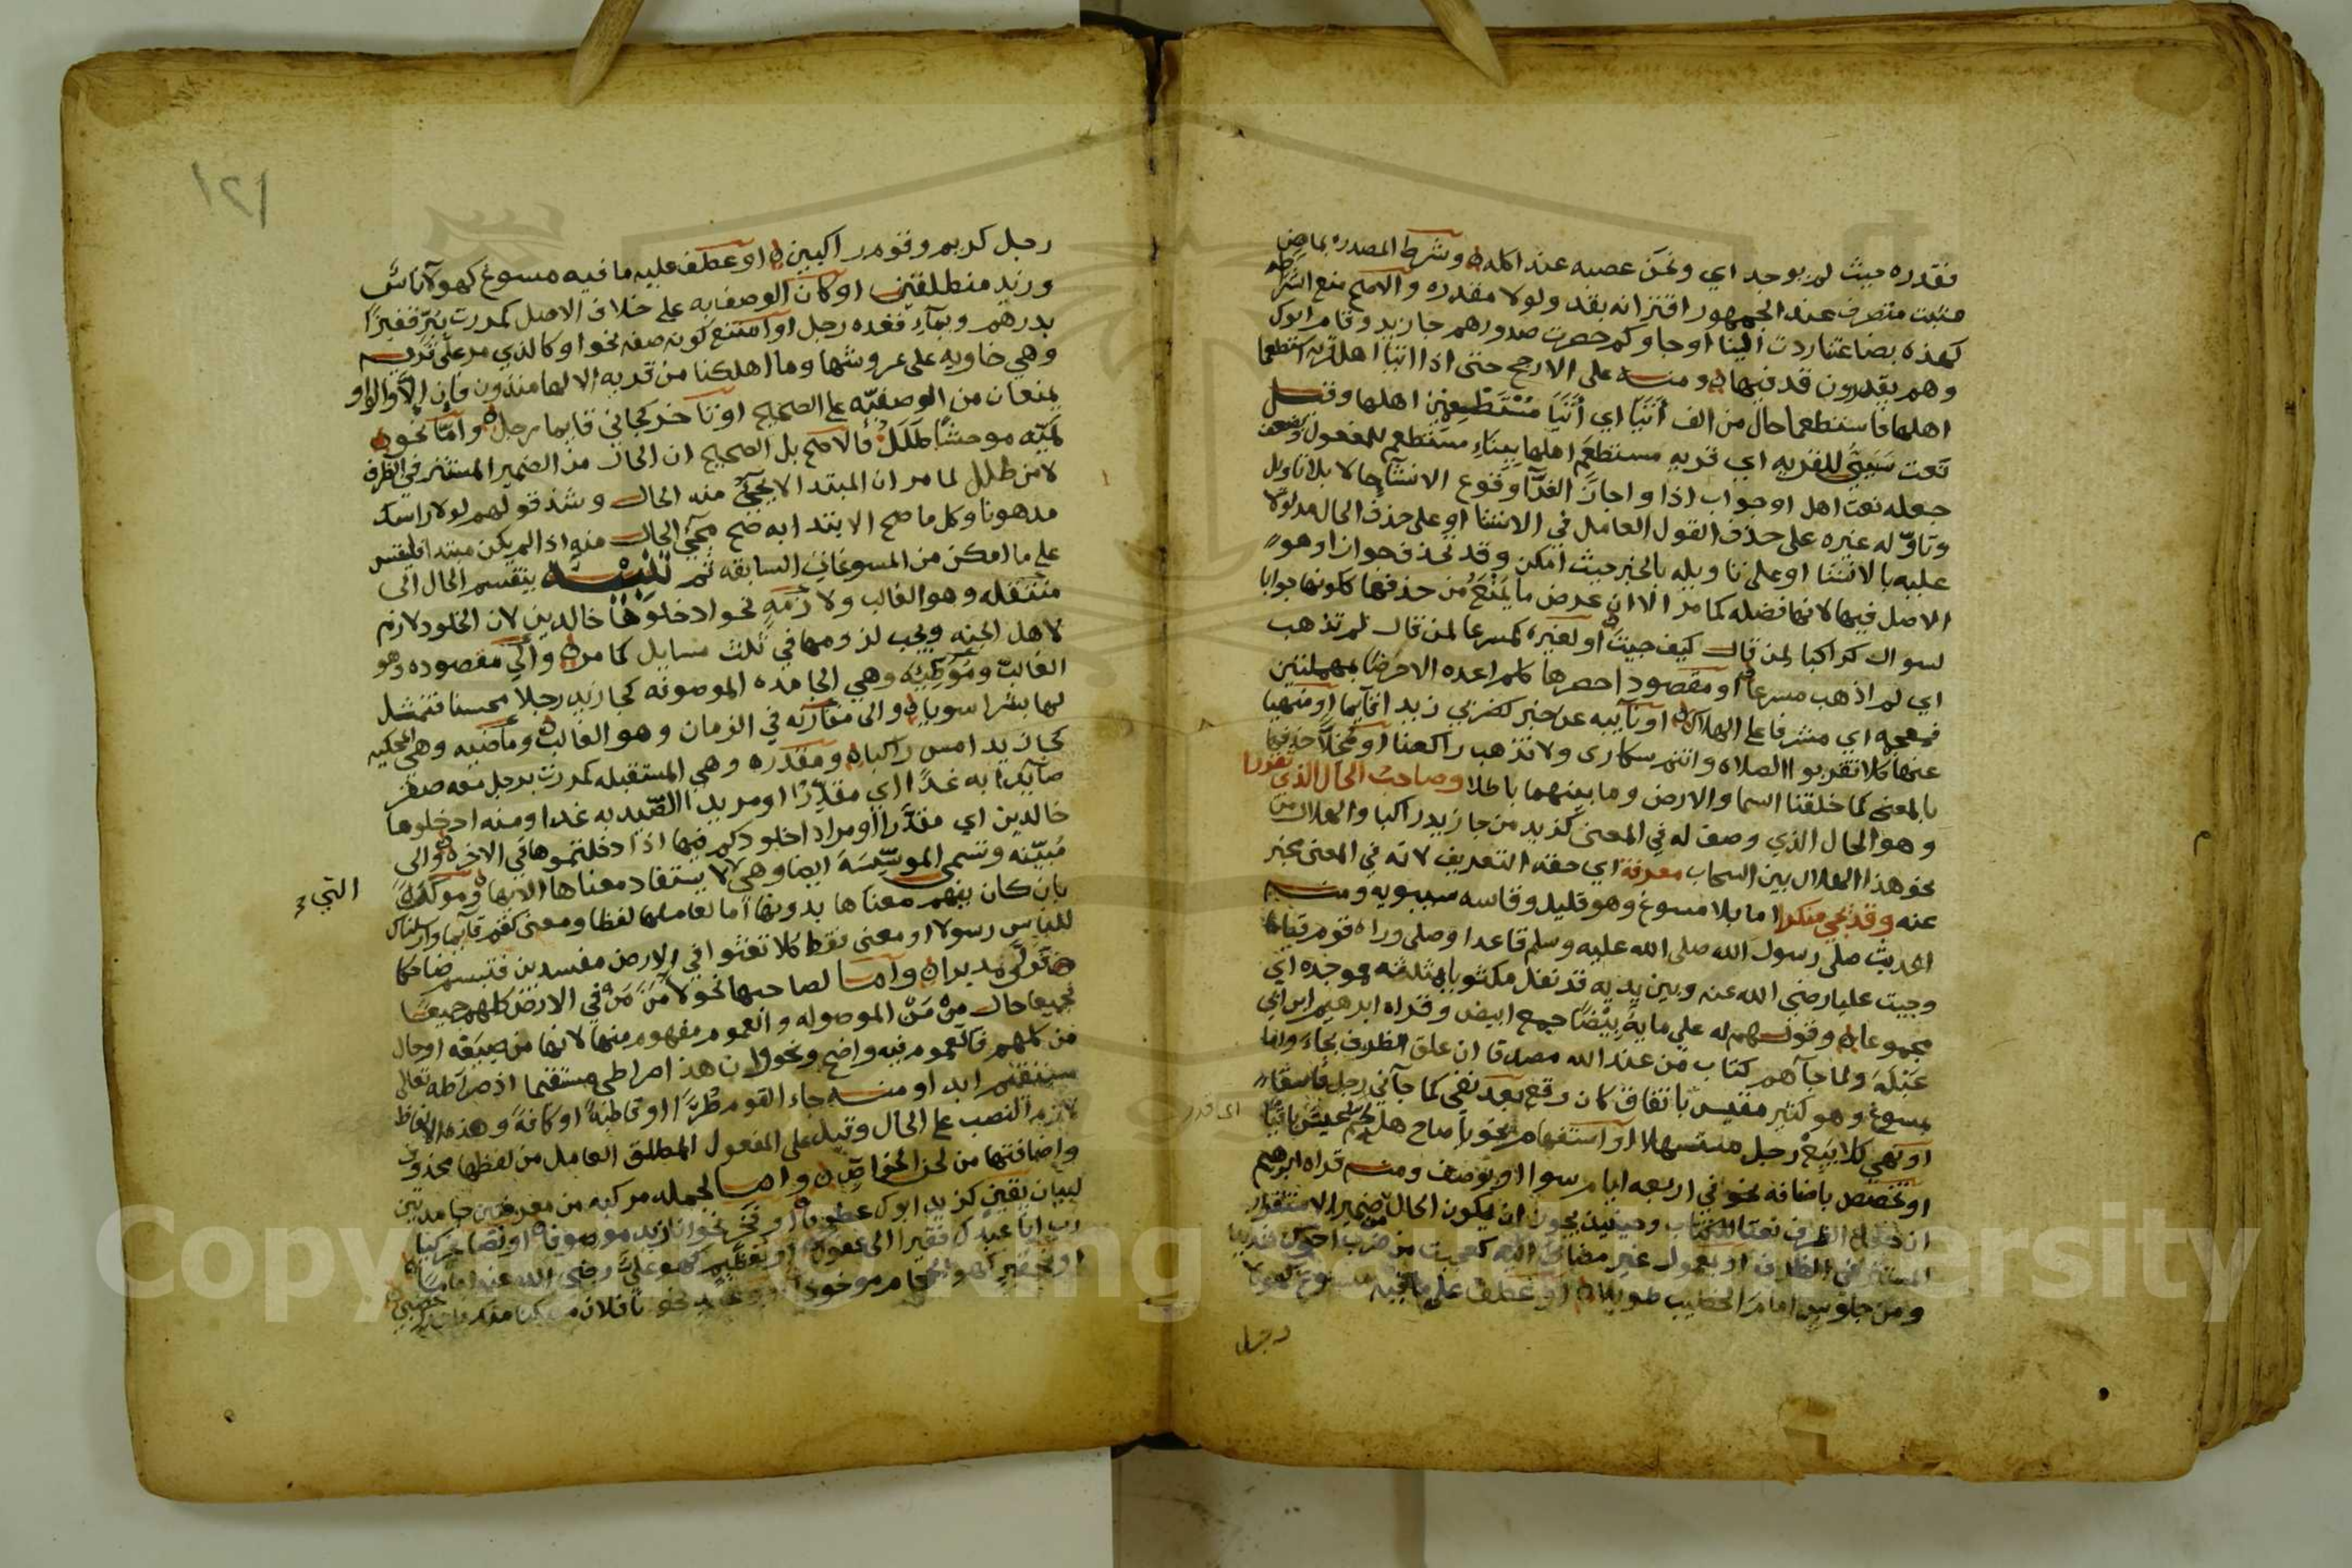 فقدره حيث لم يوجد اي ونحن عصبه عند اكله وشرط المصدره بماض
مثبت متصرف عند الجمهور اقترانه بقد ولو لا مقدره والاصح منع اشتراطه
كهذه بضاعتنا ردت الينا اوجاوكم حصرت صدورهم جا زيد وقام ابوك
وهم يقدرون قد فيها ومنه على الارجح حتى اذا اتيا اهل قريه استطعما
اهلها فاستطعما حال من الف أتيا اي أتيا مستطعمين اهلها وقيل
نعت سببي للقريه اي قريه مستطعم اهلها ببناء مستطعم للمفعول وضعف
جعله نعت اهل او جواب اذا واجاز الفرآ وقوع الانشآ حالا بلا تاويل
وتاوله غيره على حذف القول العامل في الانشا او على حذف الحال مدلولا
عليه بالانشا او على تاويله بالخبر حيث امكن وقد تحذف جوازا وهو
الاصل فيها لانها فضله كما مر الا ان عرض ما يمنع من حذفها ككونها جوابا
لسوال كراكبا لمن قال كيف جيت او لغيره كمسرعا لمن قال لم تذهب
اي لم اذهب مسرعا او مقصود احصرها كلم اعده الا حرضا بمهملتين
فمعجمه اي مشرفا على الهلاك او نآيبه عن خبر كضربي زيدا قآيما او منهيا
عنها كلا تقربوا الصلاه وانتم سكارى ولا تذهب راكعنا او مخلا حذفها
بالمعنى كما خلقنا السما والارض وما بينهما باطلا وصاحب الحال الذي تقررا
وهو الحال الذي وصف له في المعنى كزيد من جا زيد راكبا والهلال من
نحو هذا الهلال بين السحاب معرفة اي حقه التعريف لانه في المعنى مخبر
عنه وقد يجي منكرا اما بلا مسوغ وهو قليل وقاسه سيبويه ومنه
الحديث صلى رسول الله صلى الله عليه وسلم قاعدا وصلى وراه قوم قياما
وجيت عليا رضي الله عنه وبين يديه قد نفل مكثوبا بمثلثه فموحده اي
مجموعا وقولهم له علي مايه بيضا جمع ابيض وقراه ابرهيم ابن ابي
عبلة ولما جآهم كتاب من عند الله مصدقا ان علق الظرف بجاء واما
بمسوغ وهو كثير مقيس باتفاق كان وقع بعد نفي كما جآني رجل فاسقا
او نهي كلا يبغ رجل مستسهلا او استفهام نحو يا صاح هل حم عيش باقيا
او تخصص باضافه نحو في اربعه ايام سوا او بوصف ومنه قراه ابرهيم
ان جعل الظرف نعتا للكتاب وحينيذ يجوز ان يكون الحال من ضمير الاستقرار
المستقر في الظرف او بعمول غير مضاف اليه كعجبت من ضرب اخوك شديدا
ومن جلوس امام الخطيب طويلا او عطف على ما فيه مسوغ كهولا
رجل
رجل كريم وقوم راكبين او عطف عليه ما فيه مسوغ كهولآ ناس
وزيد منطلقين او كان الوصف به على خلاف الاصل كمررت ببر قفيزا
بدرهم وبمآء قعده رجل او امتنع كونه صفه نحو او كالذي مر على قريه
وهي خاويه على عروشها وما اهلكنا من قريه الا لها منذرون فان الا والواو
يمنعان من الوصفيه على الصحيح او تاخر كجاني قايما رجل واما نحو
لميه موحشا طلل فالاصح بل الصحيح ان الحال من الضمير المستتر في الظرف
لا من طلل لما مر ان المبتدا لا يجيء منه الحال وشذ قولهم لولا راسك
مدهونا وكل ما صح الابتدا به صح مجي الحال منه اذا لم يكن مبتدا فليقس
على ما امكن من المسوغات السابقه ثم تنبيه ينقسم الحال الى
منتقله وهو الغالب ولازمه نحو ادخلوها خالدين لان الخلود لازم
لاهل الجنه ويجب لزومها في ثلث مسايل كما مر والى مقصوده وهو
الغالب وموطيه وهي الجامده الموصوفه كجا زيد رجلا محسنا فتمثل
لها بشرا سويا والى مقارنه في الزمان وهو الغالب وماضيه وهي المحكيه
كجا زيد امس راكبا ومقدره وهي المستقبله كمررت برجل معه صقر
صآيدا به غدا اي مقدرا او مريدا الصيد به غدا ومنه ادخلوها
خالدين اي مقدرا او مرادا خلودكم فيها اذا دخلتموها في الاخره والى
مبينه وتسمى الموسسة ايضا وهي لا يستفاد معناها الا بها وموكده
التي
بان كان يفهم معناها بدونها اما لعاملها لفظا ومعنى كقم قآيما وارسلناك
للناس رسولا او معنى فقط كلا تعثوا في الارض مفسدين فتبسم ضاحكا
تولى مدبرا واما لصاحبها نحو لآمن من في الارض كلهم جميعا
فجميعا حال من من الموصوله والعموم مفهوم منها لانها من صيغه او حال
من كلهم فالعموم فيه واضح ونحو وان هذا صراطي مستقيما اذ صراطه تعالى
مستقيم ابدا ومنه جاء القوم طرا او قاطبة او كافة وهذه الالفاظ
لازمه النصب على الحال وقيل على المفعول المطلق العامل من لفظها محذوف
واضافتها من لحن الخواص واما لجمله مركبه من معرفتين جامدتين
لبيان يقين كزيد ابوك عطوفا او فخر نحو انا زيد موصوفا او تصاغر كيا
رب انا عبدك فقيرا الى عفوك او تعظيم كهو علي رضي الله عنه اماما
او تحقير كهو الحجام موخوذا او وعيد نحو انا فلان متمكنا منك
١٢١